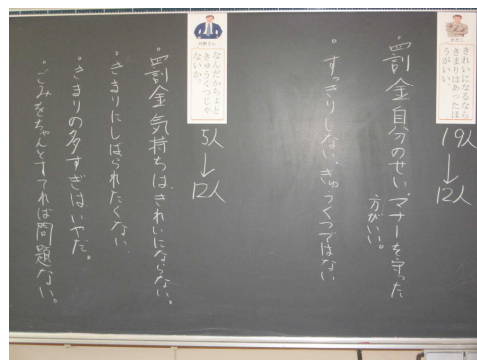 きれいになるなら
きまりはあったほ
うがいい。
19人
↓
12人
・罰金自分のせい。マナーを守った
方がいい。
・すっきりしない。きゅうくつではない
なんだかちょっと
きゅうくつじゃ
ないか。
5人
↓
12人
・罰金気持ちは、きれいにならない。
・きまりにしばられたくない。
・きまりの多すぎはいやだ。
・ごみをちゃんとすてれば問題ない。